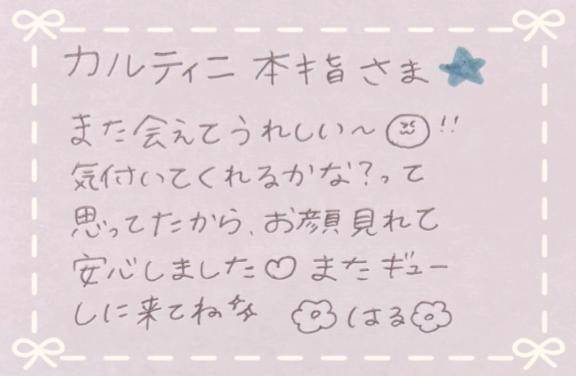 カルティニ 本指さま
また会えてうれしい〜!!
気付いてくれるかな?って
思ってたから、お顔見れて
安心しました♡ またギュー
しに来てね はる